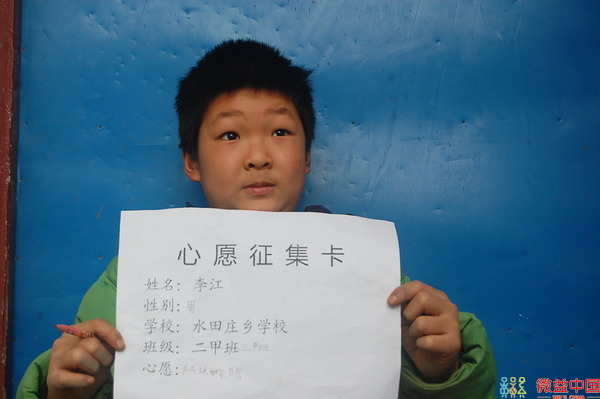 心愿征集卡
姓名：李江
性别：男
学校：水田庄乡学校
班级：二甲班 三甲班
心愿：
微益中国